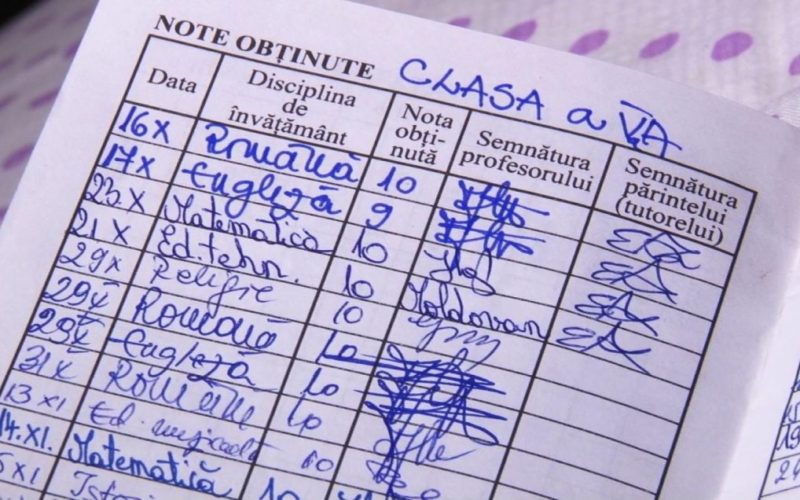 NOTE OBȚINUTE CLASA a V A
Data Disciplina de învățământ Nota obți-nută Semnătura profesorului Semnătura părintelui (tutorelui)
16 X Română 10
17 X Engleză 9
23 X Matematică 10
21 X Ed. tehn. 10 Moldovan
29 X Religie 10
29 X Română 10
29 X Engleză 10
31 X Română 10
13 XI Ed. muzicală 10
14. XI. Matematică 10